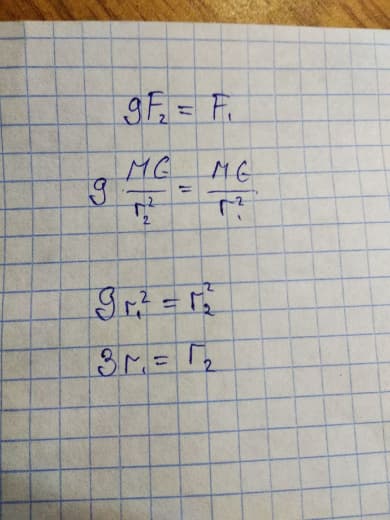 9F₂ = F₁
9 MG/r₂² = MG/r₁²
9r₁² = r₂²
3r₁ = r₂